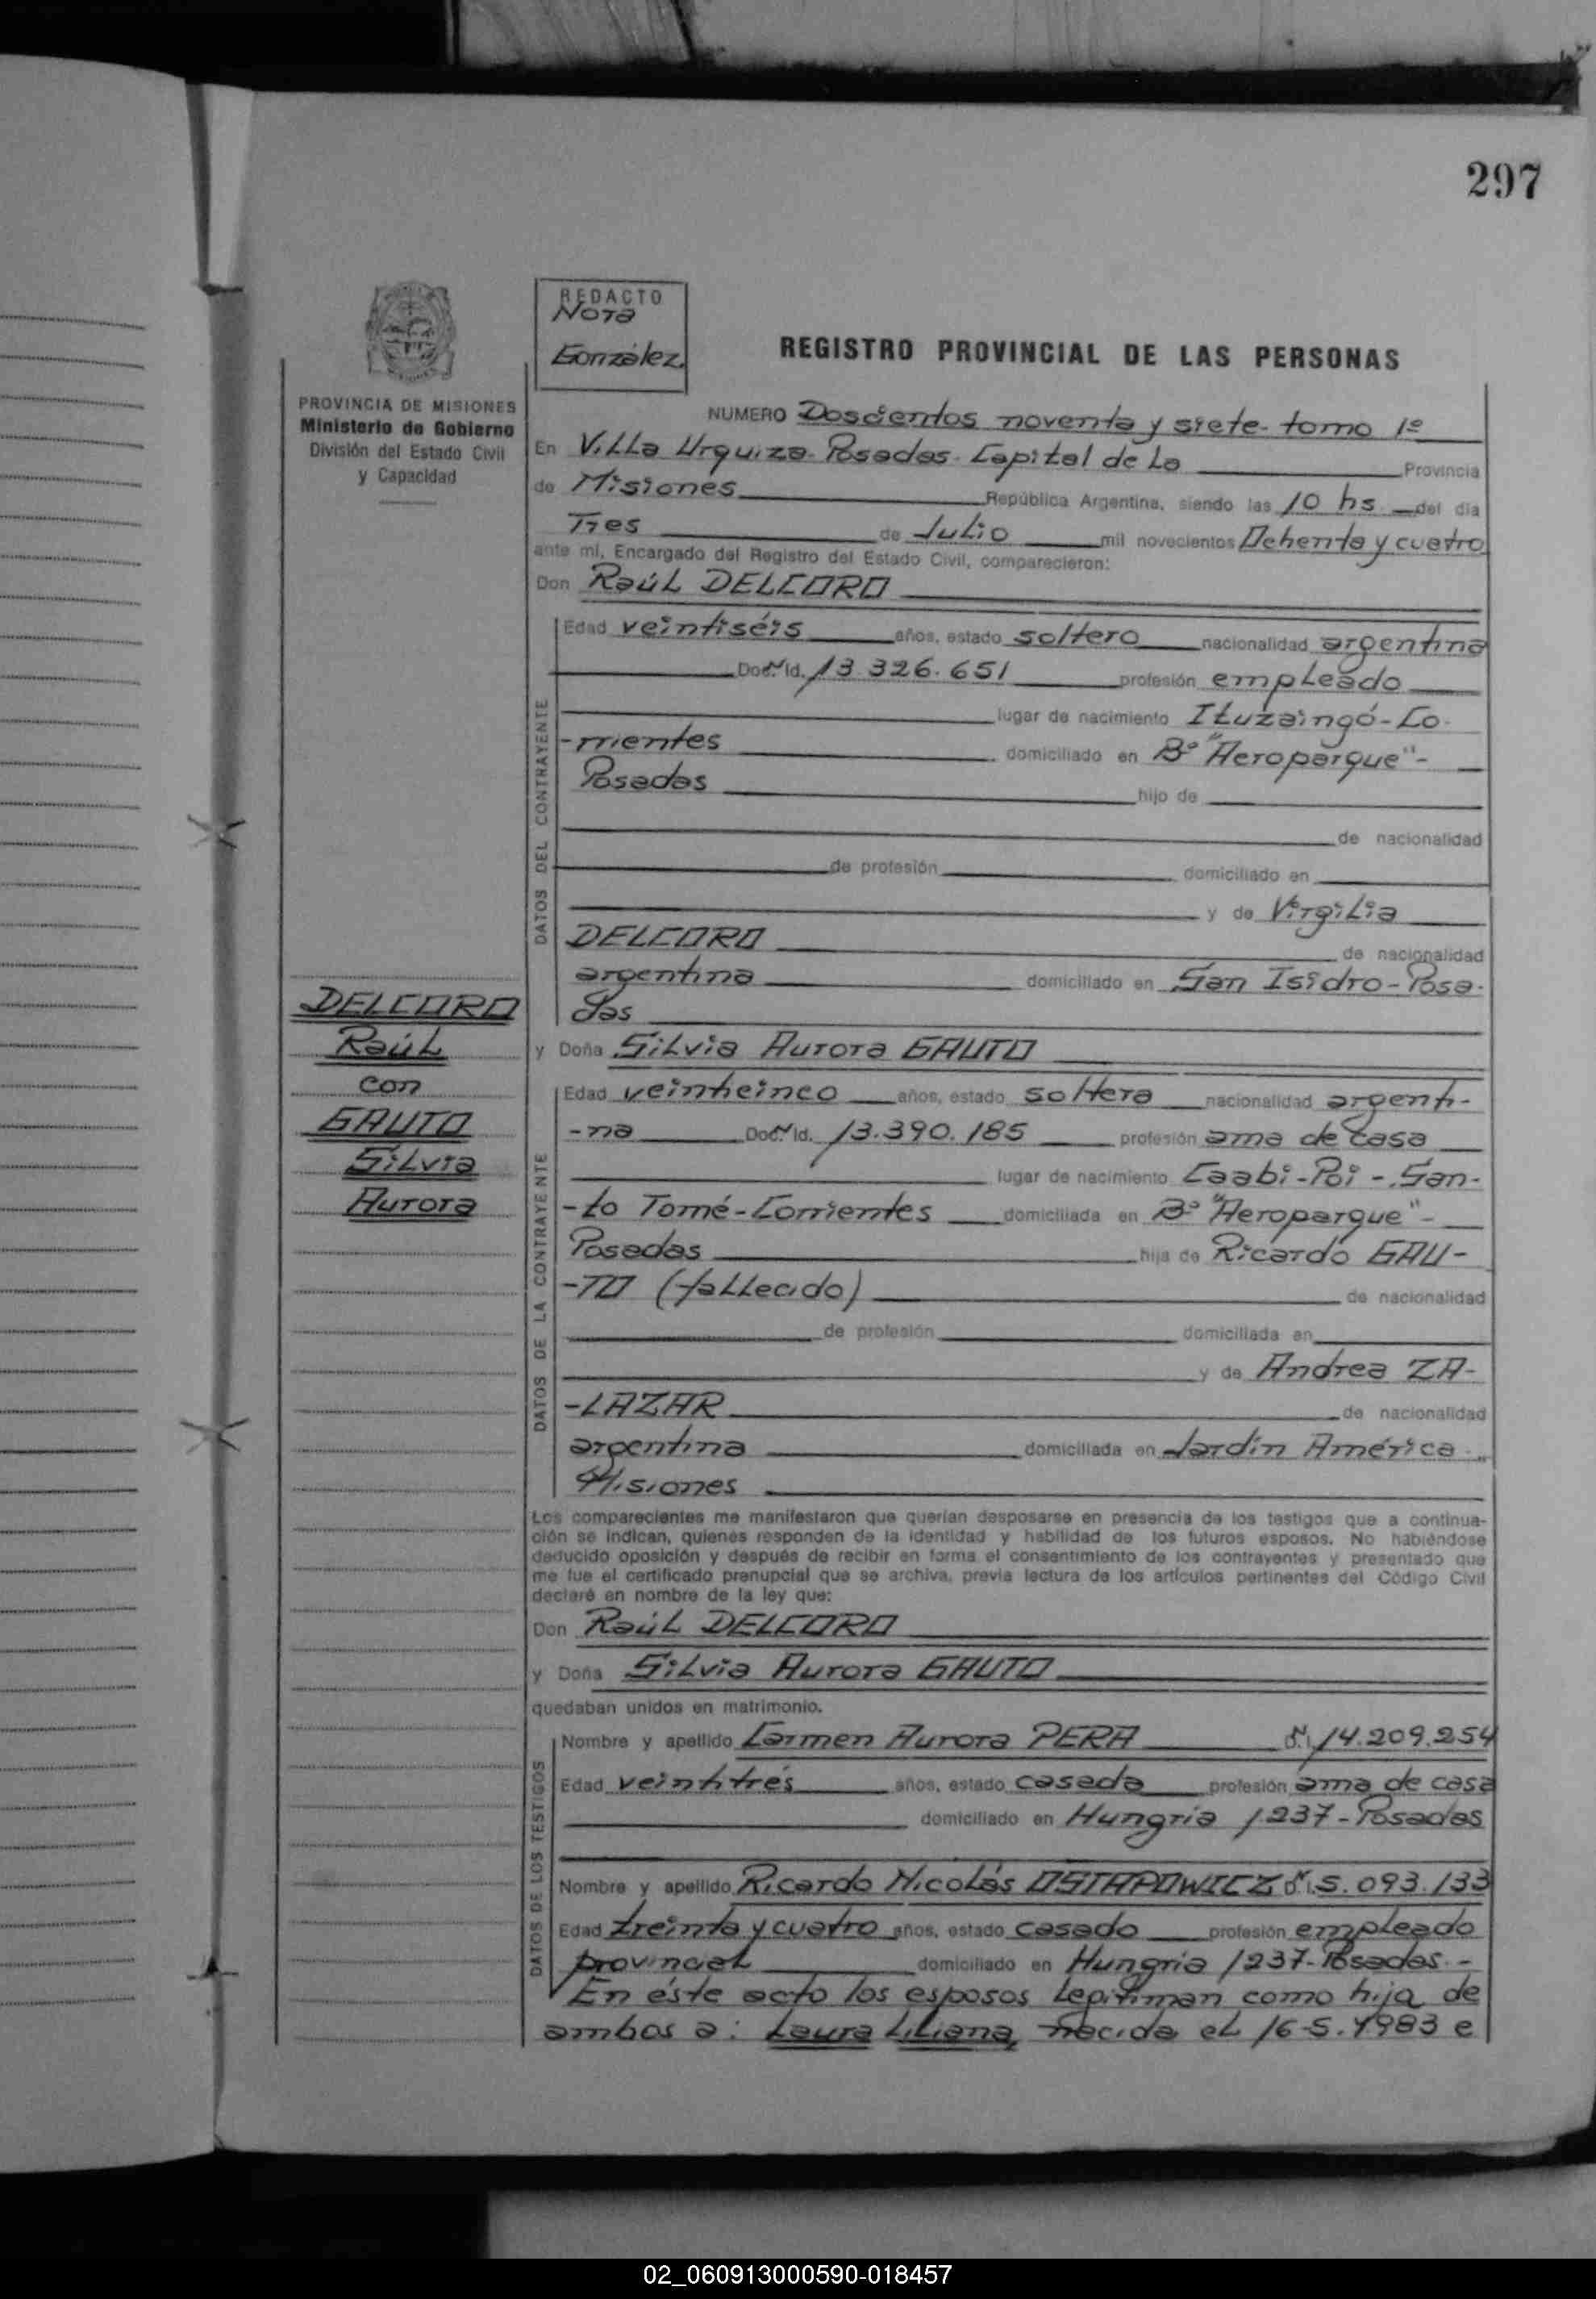 297
REDACTO
Nora
González
REGISTRO PROVINCIAL DE LAS PERSONAS
PROVINCIA DE MISIONES
Ministerio de Gobierno
División del Estado Civil
y Capacidad
NUMERO Doscientos noventa y siete- tomo 1º
En Villa Urquiza- Posadas- Capital de La Provincia
de Misiones República Argentina, siendo las 10 hs del día
Tres de Julio mil novecientos Ochenta y cuatro
ante mí, Encargado del Registro del Estado Civil, comparecieron:
Don Raúl DELCORO
DATOS DEL CONTRAYENTE
Edad veintiséis años, estado soltero nacionalidad argentina
Doc. Id. 13.326.651 profesión empleado
lugar de nacimiento Ituzaingó-Co-
-rrientes domiciliado en Bº "Aeroparque"-
Posadas hijo de
de nacionalidad
de profesión domiciliado en
y de Virgilia
DELCORO de nacionalidad
argentina domiciliado en San Isidro-Posa-
das
DELCORO
Raúl
con
GAUTO
Silvia
Aurora
y Doña Silvia Aurora GAUTO
DATOS DE LA CONTRAYENTE
Edad veinticinco años, estado soltera nacionalidad argenti-
-na Doc. Id. 13.390.185 profesión ama de casa
lugar de nacimiento Caabi-Poi-San-
-to Tomé-Corrientes domiciliada en Bº "Aeroparque"-
Posadas hija de Ricardo GAU-
-TO (fallecido) de nacionalidad
de profesión domiciliada en
y de Andrea ZA-
-LAZAR de nacionalidad
argentina domiciliada en Jardín América-
Misiones
Los comparecientes me manifestaron que querían desposarse en presencia de los testigos que a continua-
ción se indican, quienes responden de la identidad y habilidad de los futuros esposos. No habiéndose
deducido oposición y después de recibir en forma el consentimiento de los contrayentes y presentado que
me fue el certificado prenupcial que se archiva, previa lectura de los artículos pertinentes del Código Civil
declaré en nombre de la ley que:
Don Raúl DELCORO
y Doña Silvia Aurora GAUTO
quedaban unidos en matrimonio.
DATOS DE LOS TESTIGOS
Nombre y apellido Carmen Aurora PERA D.N.I. 14.209.254
Edad veintitrés años, estado casada profesión ama de casa
domiciliado en Hungría 1237-Posadas
Nombre y apellido Ricardo Nicolás OSTAPOWICZ D.N.I. 5.093.133
Edad treinta y cuatro años, estado casado profesión empleado
provincial domiciliado en Hungría 1237-Posadas.-
En éste acto los esposos legitiman como hija de
ambos a: Laura Liliana, nacida el 16-5-1983 e
02_060913000590-018457